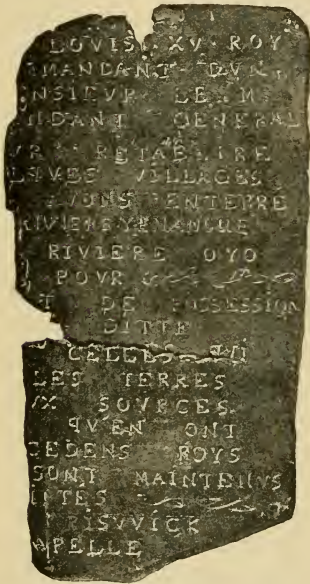 LOVIS XV ROY
MANDANT DVN
NSIEVR LE M
NDANT GENERAL
VR RETABLIRE
LQVES VILLAGES
AVONS ENTERRE
RIVIERE YENANGUE
RIVIERE OYO
POVR
T DE POSSESSION
DITTE
CELLES
LES TERRES
VX SOVRCES
QV'EN ONT
CEDENS ROYS
SONT MAINTENVS
ITES
RISVVICK
APELLE